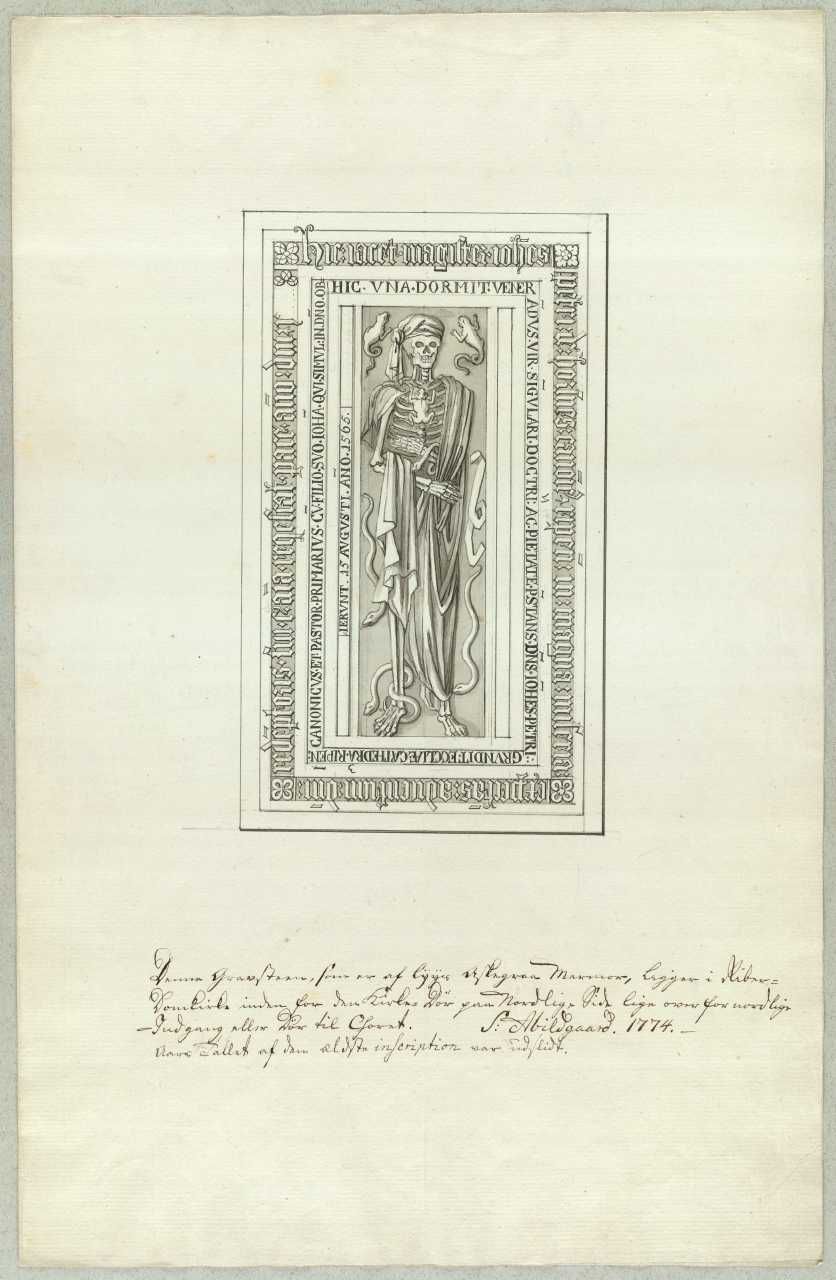 Hic·iacet·magister·iohes
petri·et·iohnes·canoic·ripen·in·magna·miseria·
et·petes·aduentum·dni
in·c·aia·
pace·ano·dni
HIC·VNA·DORMIT·VENER
ADVS·VIR·SIGVLARI·DOCTRI·AC·PIETATE·PSTANS·DNS·IOHES·PETRI·
GRVNDIT·ECCLIÆ·CATHEDRA·RIPEN·
CANONICVS·ET·PASTOR·PRIMARIVS·CV·FILIO·SVO·IOHA·QVI·SIMVL·IN·DNO·OB
IERVNT·15 AVGVSTI·ANO·1565·
Denne Gravsteen, som er af lys Askegraa Marmor, ligger i Riber=
Domkirke inden for den Kirke Dör paa Nordlige Side lige over for nordlige
Indgang eller Dör til Choret. S: Abildgaard. 1774.
Aars Tallet af den ældste inscription var udslidt.